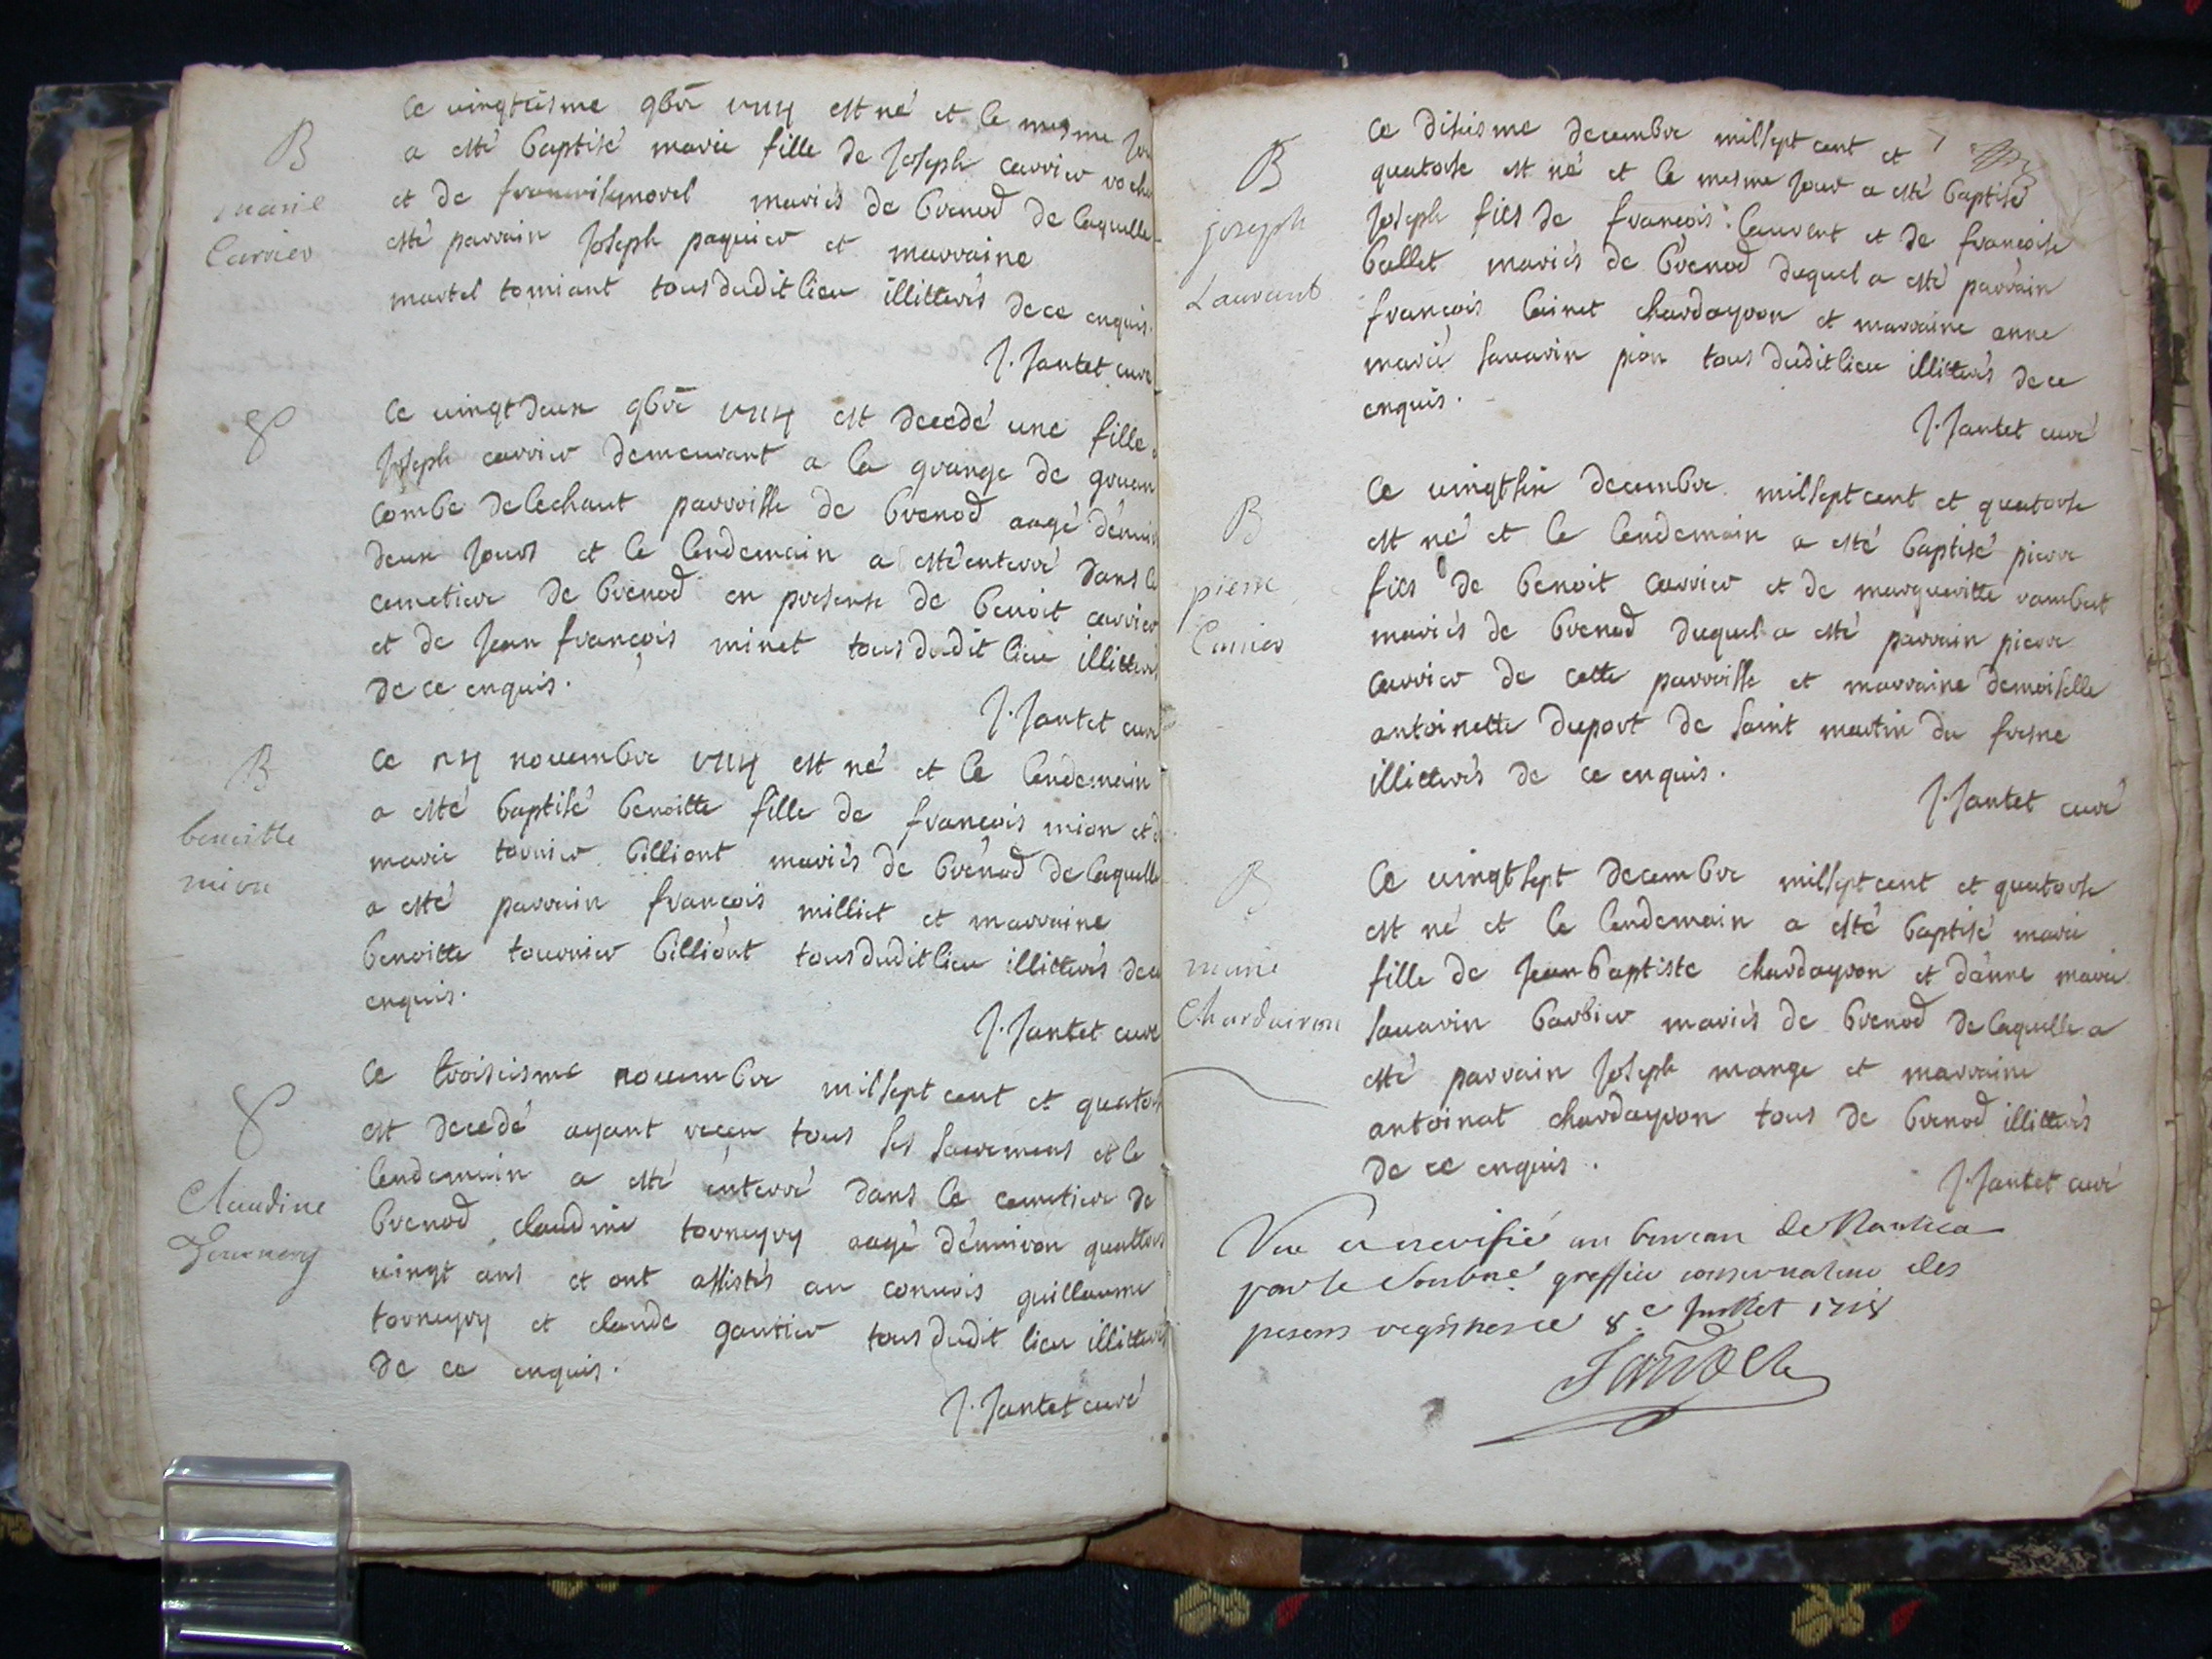 B
marie
Carrier
Le vingtiesme 9bre 1714 est né et le mesme jou
a esté baptisé marie fille de Joseph carrier roche
et de francoise morel mariés de brenod de laquelle
esté parrain Joseph paquier et marraine
martel tomiant tous dudit lieu illitterés de ce enquis.
J. Jantet curé
Le vingt deux 9bre 1714 est decedé une fille
Joseph carrier demeurant a la grange de
combe de lechaut parroisse de brenod aagé d'envir
deux jours et le lendemain a esté enterré dans le
cemetiere de brenod en presense de benoit carrier
et de Jean françois minet tous dudit lieu illitterés
de ce enquis.
J. Jantet curé
B
benoitte
mion
Le 24 novembre 1714 est né et le lendemain
a esté baptisé benoitte fille de françois mion et d
marie tornier billiont mariés de brenod de laquelle
a esté parrain françois milliet et marraine
benoitte tournier billiont tous dudit lieu illitterés de ce
enquis.
J. Jantet curé
Claudine
Tournery
Le troisiesme novembre mil sept cent et quators
est decedé ayant reçeu tous ses sacremens et le
lendemain a esté enterré dans le cemetiere de
brenod claudine torneyry aagé d'environ quattres
vingt ans et ont assistés au convois guillaume
torneyry et claude gautier tous dudit lieu illitterés
de ce enquis.
J. Jantet curé
B
joseph
Laurant
Le disiesme decembre mil sept cent et
quatorse est né et le mesme jour a esté baptisé
Joseph fils de françois laurent et de françoise
ballet mariés de brenod duquel a esté parrain
françois lainet chardayron et marraine anne
marie savarin pion tous dudit lieu illitterés de ce
enquis.
J. Jantet curé
B
pierre
Carrier
Le vingt six decembre mil sept cent et quatorse
est né et le lendemain a esté baptisé pierre
fils de benoit carrier et de margueritte rambert
mariés de brenod duquel a esté parrain pierre
carrier de cette parroisse et marraine demoiselle
antoinette duport de saint martin du fresne
illitterés de ce enquis.
J. Jantet curé
B
marie
Chardairon
Le vingt sept decembre mil sept cent et quatorse
est né et le lendemain a esté baptisé marie
fille de Jean baptiste chardayron et d'anne marie
savarin barbier mariés de brenod de laquelle a
esté parrain Joseph mange et marraine
antoinat chardayron tous de brenod illitterés
de ce enquis.
J. Jantet curé
Veu et verifié au bureau de Nantua
par le soubne greffier conservateur des
presens registres ce 8e Juillet 1718